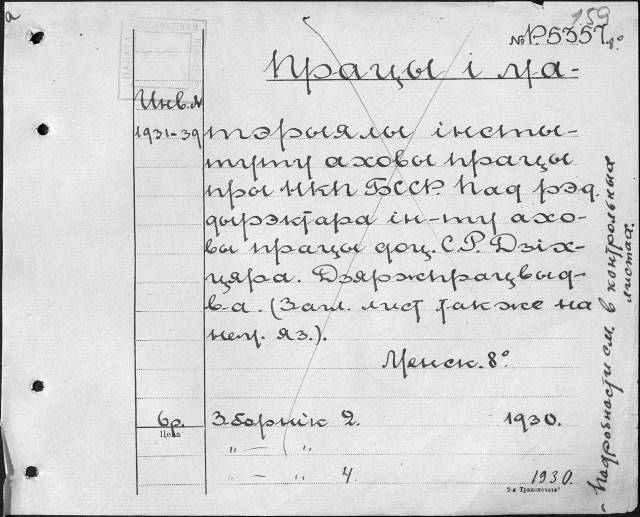 а
159
№ Р5357 8°
Працы і ма-
Инв. №
1931-39
тэрыялы інсты-
туту аховы працы
пры НКП БССР. Пад рэд.
дырэктара ін-ту ахо-
вы працы доц. С.Р. Дзіх-
цяра. Дзяржпрацвыд-
в-а. (Загл. лист также на
нем. яз.).
Менск. 8°
6 р.
Цена
Зборнік 2. 1930.
„ — „
„ — „ 4. 1930.
Подробности см. в контрольных
листах.